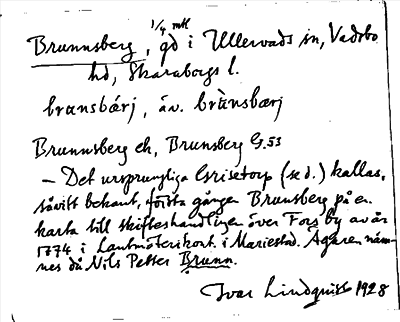 1/4 mtl
Brunnsberg, gd i Ullervads sn, Vadsbo
hd, Skaraborgs l.
brunsbárj, äv. brùnsbærj
Brunnsberg ek, Brunsberg G.53
— Det ursprungliga Grisetorp (se d.) kallas,
såvitt bekant, första gången Brunsberg på en
karta till skifteshandlingen över Fors by av år
1774 i Lantmäterikont. i Mariestad. Ägaren näm-
nes då Nils Petter Brunn.
Ivar Lindquist 1928